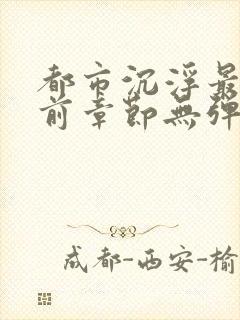 都市沉浮最
前章节無弹
成都-西安-榆